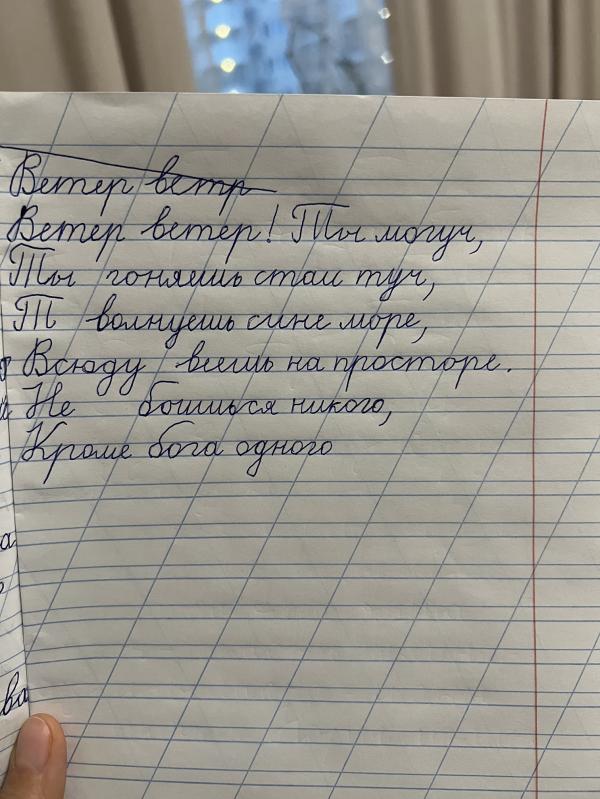 Ветер ветр
Ветер ветер! Ты могуч,
Ты гоняешь стаи туч,
Т волнуешь сине море,
Всюду веешь на просторе.
Не боишься никого,
Кроме бога одного
а
ва